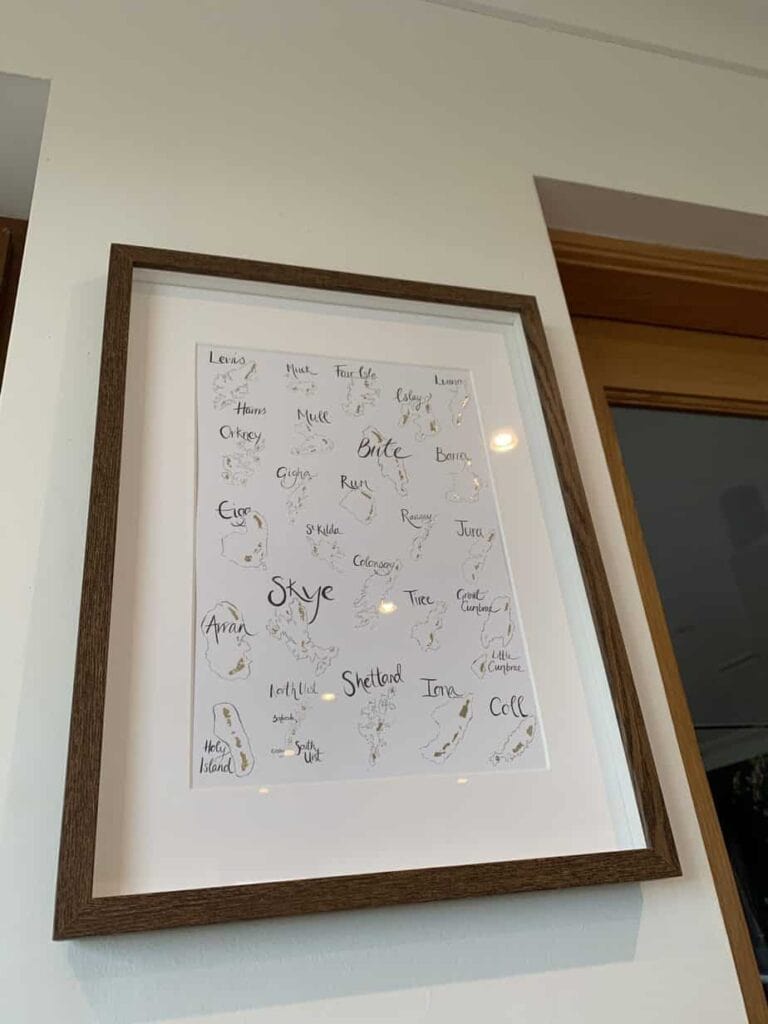 Lewis
Harris
Muck
Fair Isle
Islay
Luing
Orkney
Mull
Bute
Barra
Gigha
Rum
Eigg
St Kilda
Raasay
Jura
Colonsay
Skye
Tiree
Great
Cumbrae
Arran
Little
Cumbrae
North Uist
South
Uist
Shetland
Iona
Coll
Holy
Island